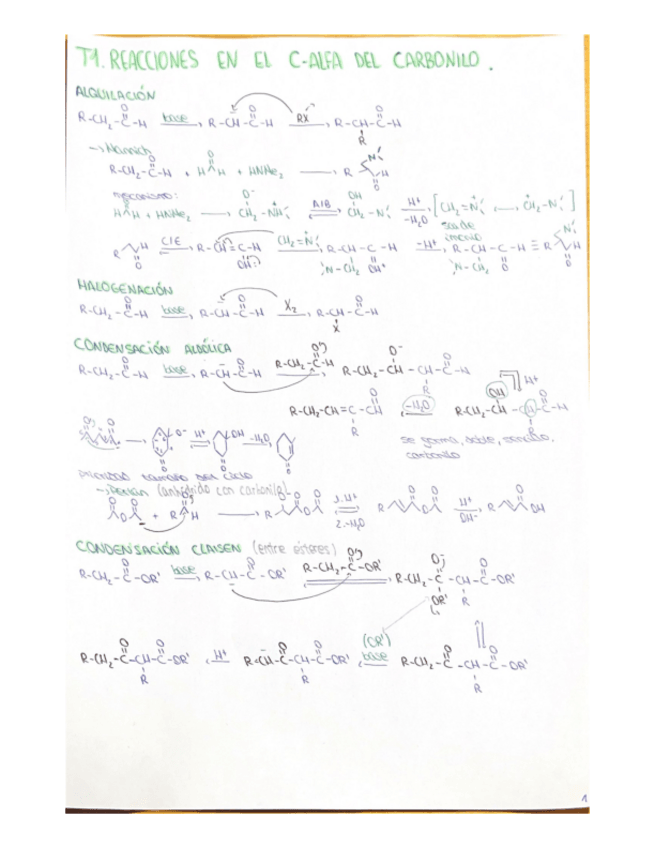 T1. REACCIONES EN EL C-ALFA DEL CARBONILO.
ALQUILACIÓN
R-CH₂-C-H base R-CH-C-H RX R-CH-C-H
→ Mannich
R-CH₂-C-H + H H + HNMe₂
mecanismo:
H H + HNMe₂ CH₂-NH A/B CH₂-N H⁺ -H₂O [CH₂=N CH₂-N]
C/E R-CH=C-H CH₂=N R-CH-C-H -H⁺ R-CH-C-H ≡ R H
HALOGENACIÓN
R-CH₂-C-H base R-CH-C-H X₂ R-CH-C-H
X
CONDENSACIÓN ALDÓLICA
R-CH₂-C-H base R-CH-C-H R-CH₂-C-H R-CH₂-CH-CH-C-H
R-CH₂-CH=C-CH -H₂O R-CH₂-CH-CH-C-H H⁺
se forma doble, sencillo,
carbonilo
O⁻ H⁺ OH -H₂O
prioridad tamaño del ciclo
→ Perkin (anhídrido con carbonilo)
+ R H 1. H⁺ 2. -H₂O H⁺ OH⁻ OH
CONDENSACIÓN CLAISEN (entre ésteres)
R-CH₂-C-OR' base R-CH-C-OR' R-CH₂-C-OR' R-CH₂-C-CH-C-OR'
OR' R
R-CH₂-C-CH-C-OR' H⁺ R-CH-C-CH-C-OR' (OR') base R-CH₂-C-CH-C-OR'
R R R
1